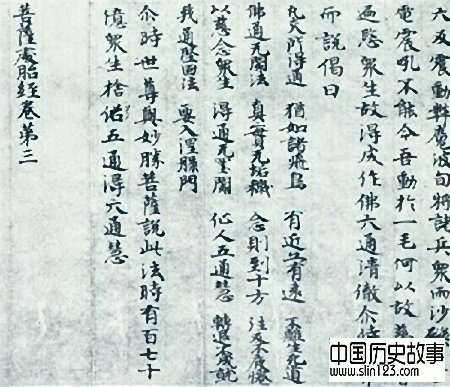 六反震動弊魔波旬將諸兵衆而沙礫
電震吼不能令吾動於一毛何以故慈
遍愍衆生故得成作佛六通清徹尒時
而說偈曰
凡夫所得通 猶如諸飛鳥 有近亦有遠 不離生死道
佛通无閡法 真實无垢穢 念則到十方 往反不疲惓
以慈念衆生 得通无罣閡 仙人五通慧 轉退不成就
我通堅固法 要入涅槃門
尒時世尊與妙勝菩薩說此法時有百七十
億衆生捨俗五通得六通慧
菩薩處胎經卷第三
中国历史故事
www.slin123.com